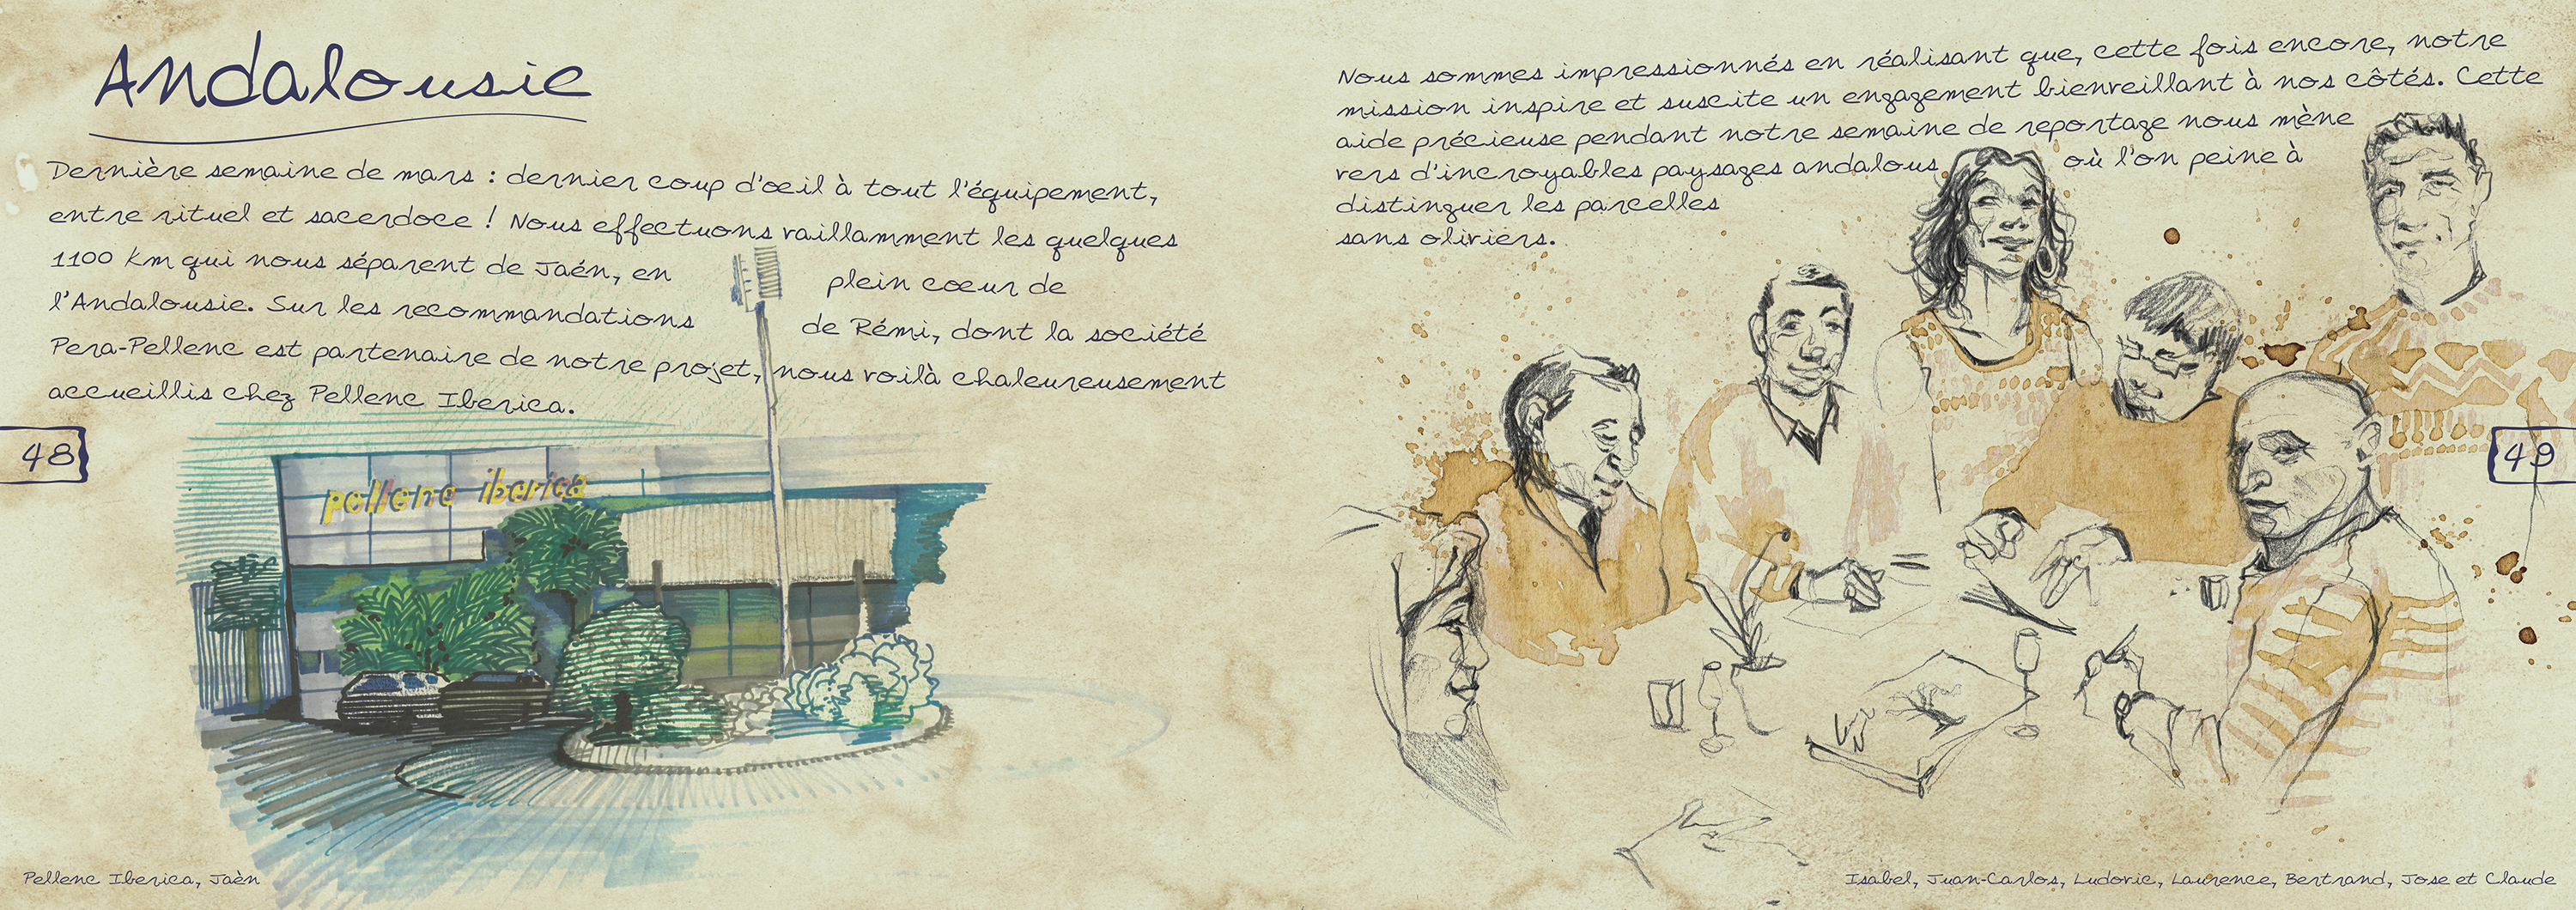 Andalousie
Dernière semaine de mars : dernier coup d'œil à tout l'équipement,
entre rituel et sacerdoce ! Nous effectuons vaillamment les quelques
1100 km qui nous séparent de Jaén, en plein cœur de
l'Andalousie. Sur les recommandations de Rémi, dont la société
Pera-Pellenc est partenaire de notre projet, nous voilà chaleureusement
accueillis chez Pellenc Iberica.
48
pellenc iberica
Pellenc Iberica, Jaèn
Nous sommes impressionnés en réalisant que, cette fois encore, notre
mission inspire et suscite un engagement bienveillant à nos côtés. Cette
aide précieuse pendant notre semaine de reportage nous mène
vers d'incroyables paysages andalous où l'on peine à
distinguer les parcelles
sans oliviers.
49
Isabel, Juan-Carlos, Ludovic, Laurence, Bertrand, Jose et Claude